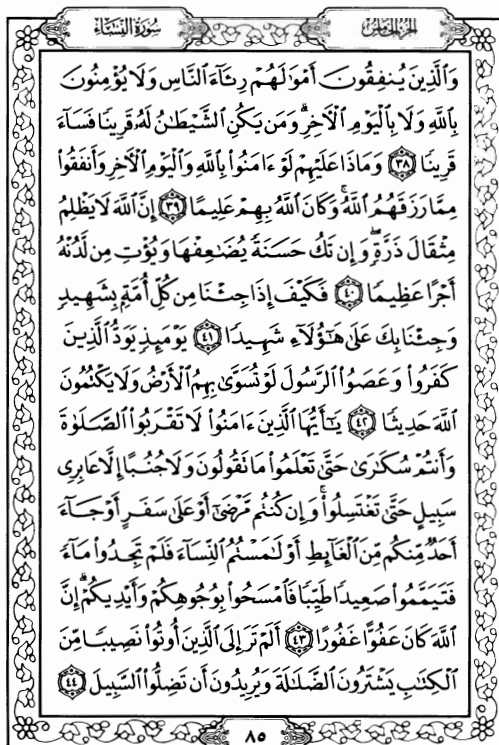 الجزء الخامس
سورة النساء
وَالَّذِينَ يُنفِقُونَ أَمْوَٰلَهُمْ رِئَآءَ النَّاسِ وَلَا يُؤْمِنُونَ
بِاللَّهِ وَلَا بِالْيَوْمِ الْأَخِرِ ۗ وَمَن يَكُنِ الشَّيْطَٰنُ لَهُۥ قَرِينًا فَسَآءَ
قَرِينًا ٣٨ وَمَاذَا عَلَيْهِمْ لَوْ ءَامَنُوا۟ بِاللَّهِ وَالْيَوْمِ الْأَخِرِ وَأَنفَقُوا۟
مِمَّا رَزَقَهُمُ اللَّهُ ۚ وَكَانَ اللَّهُ بِهِمْ عَلِيمًا ٣٩ إِنَّ اللَّهَ لَا يَظْلِمُ
مِثْقَالَ ذَرَّةٍ ۖ وَإِن تَكُ حَسَنَةً يُضَٰعِفْهَا وَيُؤْتِ مِن لَّدُنْهُ
أَجْرًا عَظِيمًا ٤٠ فَكَيْفَ إِذَا جِئْنَا مِن كُلِّ أُمَّةٍۭ بِشَهِيدٍ
وَجِئْنَا بِكَ عَلَىٰ هَٰٓؤُلَآءِ شَهِيدًا ٤١ يَوْمَئِذٍ يَوَدُّ الَّذِينَ
كَفَرُوا۟ وَعَصَوُا۟ الرَّسُولَ لَوْ تُسَوَّىٰ بِهِمُ الْأَرْضُ وَلَا يَكْتُمُونَ
اللَّهَ حَدِيثًا ٤٢ يَٰٓأَيُّهَا الَّذِينَ ءَامَنُوا۟ لَا تَقْرَبُوا۟ الصَّلَوٰةَ
وَأَنتُمْ سُكَٰرَىٰ حَتَّىٰ تَعْلَمُوا۟ مَا تَقُولُونَ وَلَا جُنُبًا إِلَّا عَابِرِى
سَبِيلٍ حَتَّىٰ تَغْتَسِلُوا۟ ۚ وَإِن كُنتُم مَّرْضَىٰٓ أَوْ عَلَىٰ سَفَرٍ أَوْ جَآءَ
أَحَدٌ مِّنكُم مِّنَ الْغَآئِطِ أَوْ لَٰمَسْتُمُ النِّسَآءَ فَلَمْ تَجِدُوا۟ مَآءً
فَتَيَمَّمُوا۟ صَعِيدًا طَيِّبًا فَامْسَحُوا۟ بِوُجُوهِكُمْ وَأَيْدِيكُمْ ۗ إِنَّ
اللَّهَ كَانَ عَفُوًّا غَفُورًا ٤٣ أَلَمْ تَرَ إِلَى الَّذِينَ أُوتُوا۟ نَصِيبًا مِّنَ
الْكِتَٰبِ يَشْتَرُونَ الضَّلَٰلَةَ وَيُرِيدُونَ أَن تَضِلُّوا۟ السَّبِيلَ ٤٤
٨٥